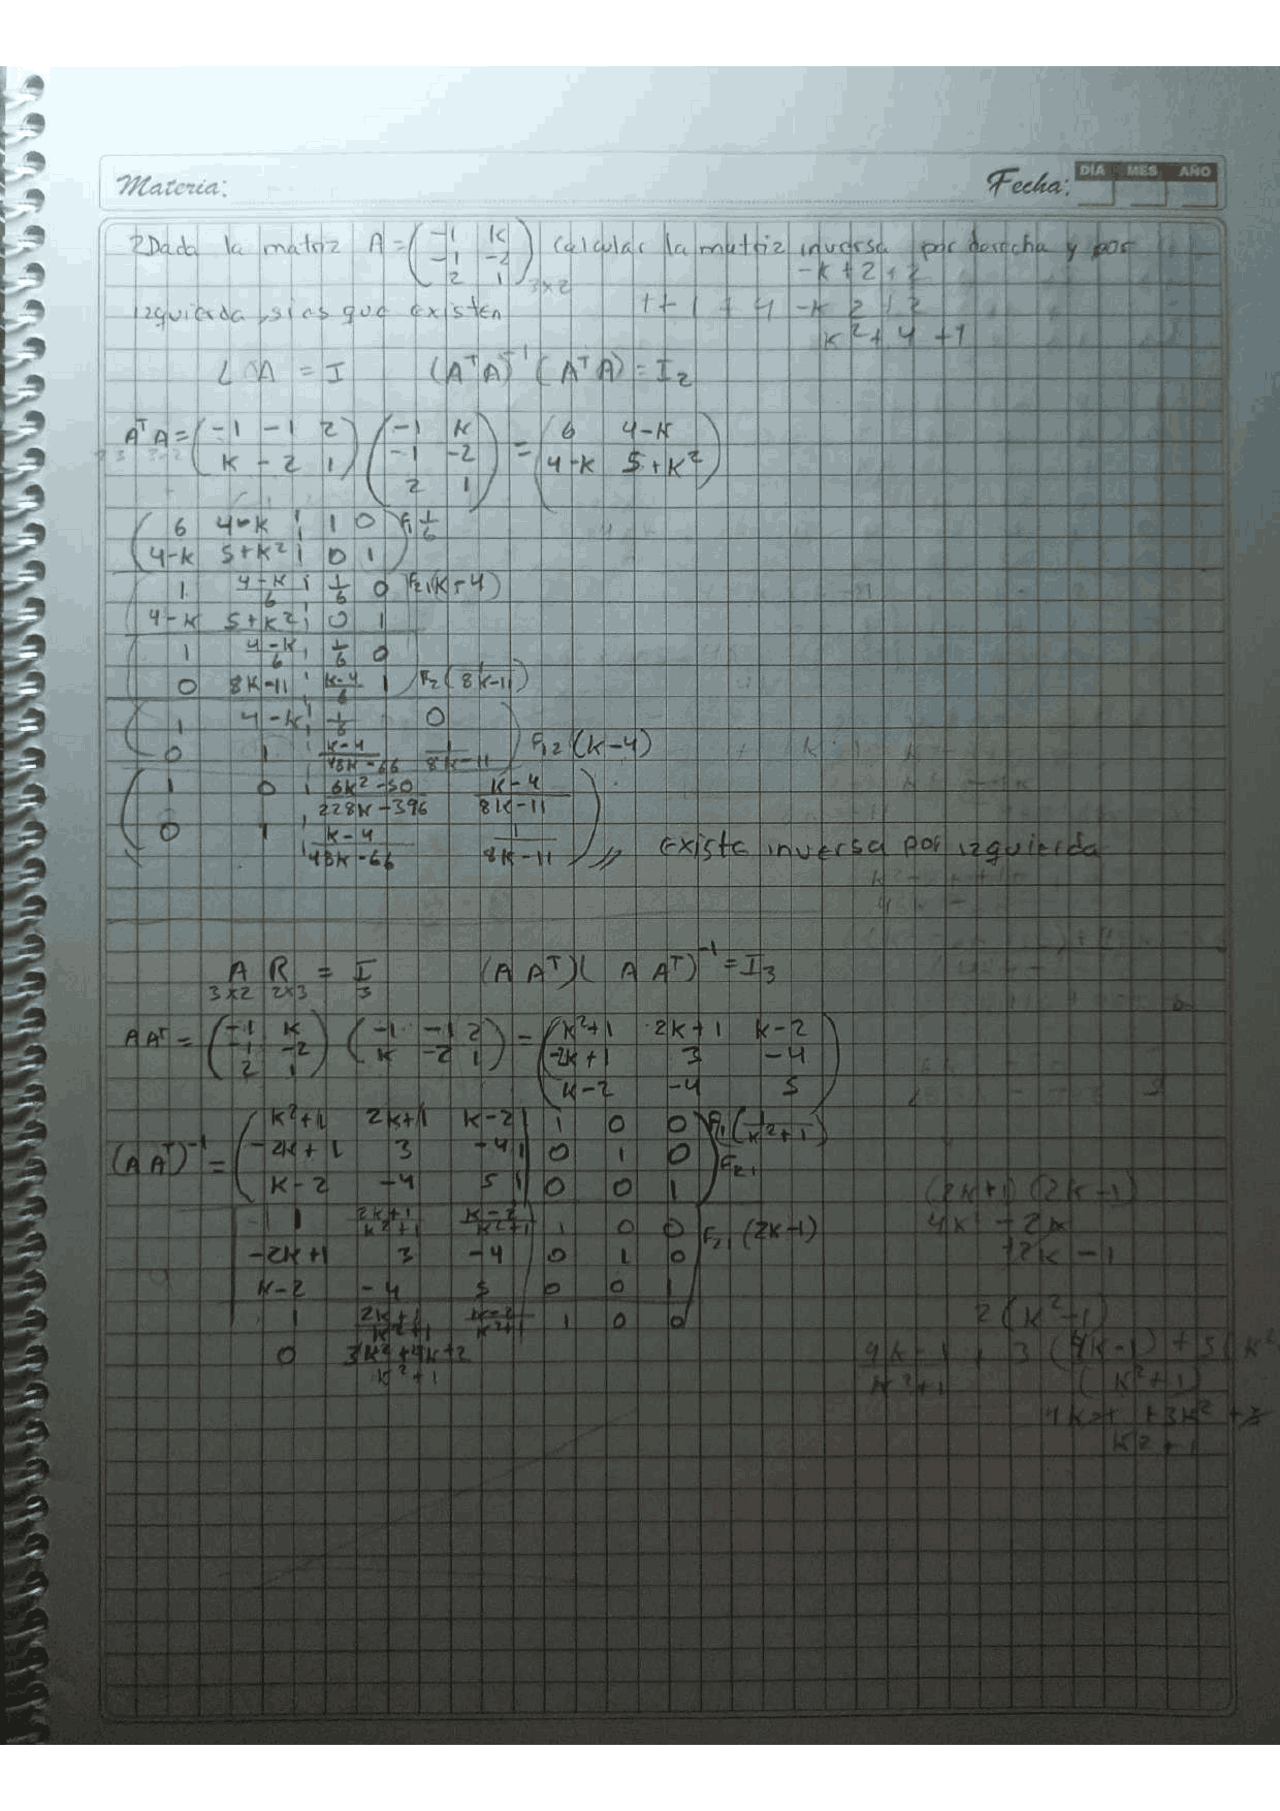 Materia:
Fecha: DIA MES AÑO
2Dada la matriz A = ( -1 K
-1 -2
2 1 )3x2 calcular la matriz inversa por derecha y por
-k+2+2
izquierda, si es que existen
1+1+4 -k 2+2
k²+4+1
L A = I (AᵀA)⁻¹ (AᵀA) = I2
AᵀA = ( -1 -1 2
K -2 1 ) ( -1 K
-1 -2
2 1 ) = ( 6 4-K
4-K 5+K² )
( 6 4-K | 1 0
4-K 5+K² | 0 1 ) F1 1/6
1 4-K/6 | 1/6 0 F21(K-4)
4-K 5+K² | 0 1
1 4-K/6 | 1/6 0
0 8K-11 | K-4/6 1 F2(1/8K-11)
( 1 4-K | 1/6 0
0 1 | K-4/48K-66 1/8K-11 ) F12(K-4)
( 1 0 | 6K²-50/228K-396 K-4/8K-11
0 1 | K-4/48K-66 1/8K-11 ) // Existe inversa por izquierda
A R = I (A Aᵀ)(A Aᵀ)⁻¹ = I3
3x2 2x3 3
AAᵀ = ( -1 K
-1 -2
2 1 ) ( -1 -1 2
K -2 1 ) = ( K²+1 2K+1 K-2
-2K+1 3 -4
K-2 -4 5 )
(A Aᵀ)⁻¹ = ( K²+1 2K+1 K-2 | 1 0 0
-2K+1 3 -4 | 0 1 0
K-2 -4 5 | 0 0 1 ) F1(1/K²+1)
F21
1 2K+1/K²+1 K-2/K²+1 | 1 0 0 F21(2K-1)
-2K+1 3 -4 | 0 1 0
K-2 -4 5 0 0 1
1 2K+1/K²+1 K-2/K²+1 1 0 0
0 3K²+4K+2/K²+1
(2K+1)(2K-1)
4K² - 2K
+2K - 1
2(K²-1)
4K-1/K²+1 + 3 (4K-1)+3(K²
(K²+1)